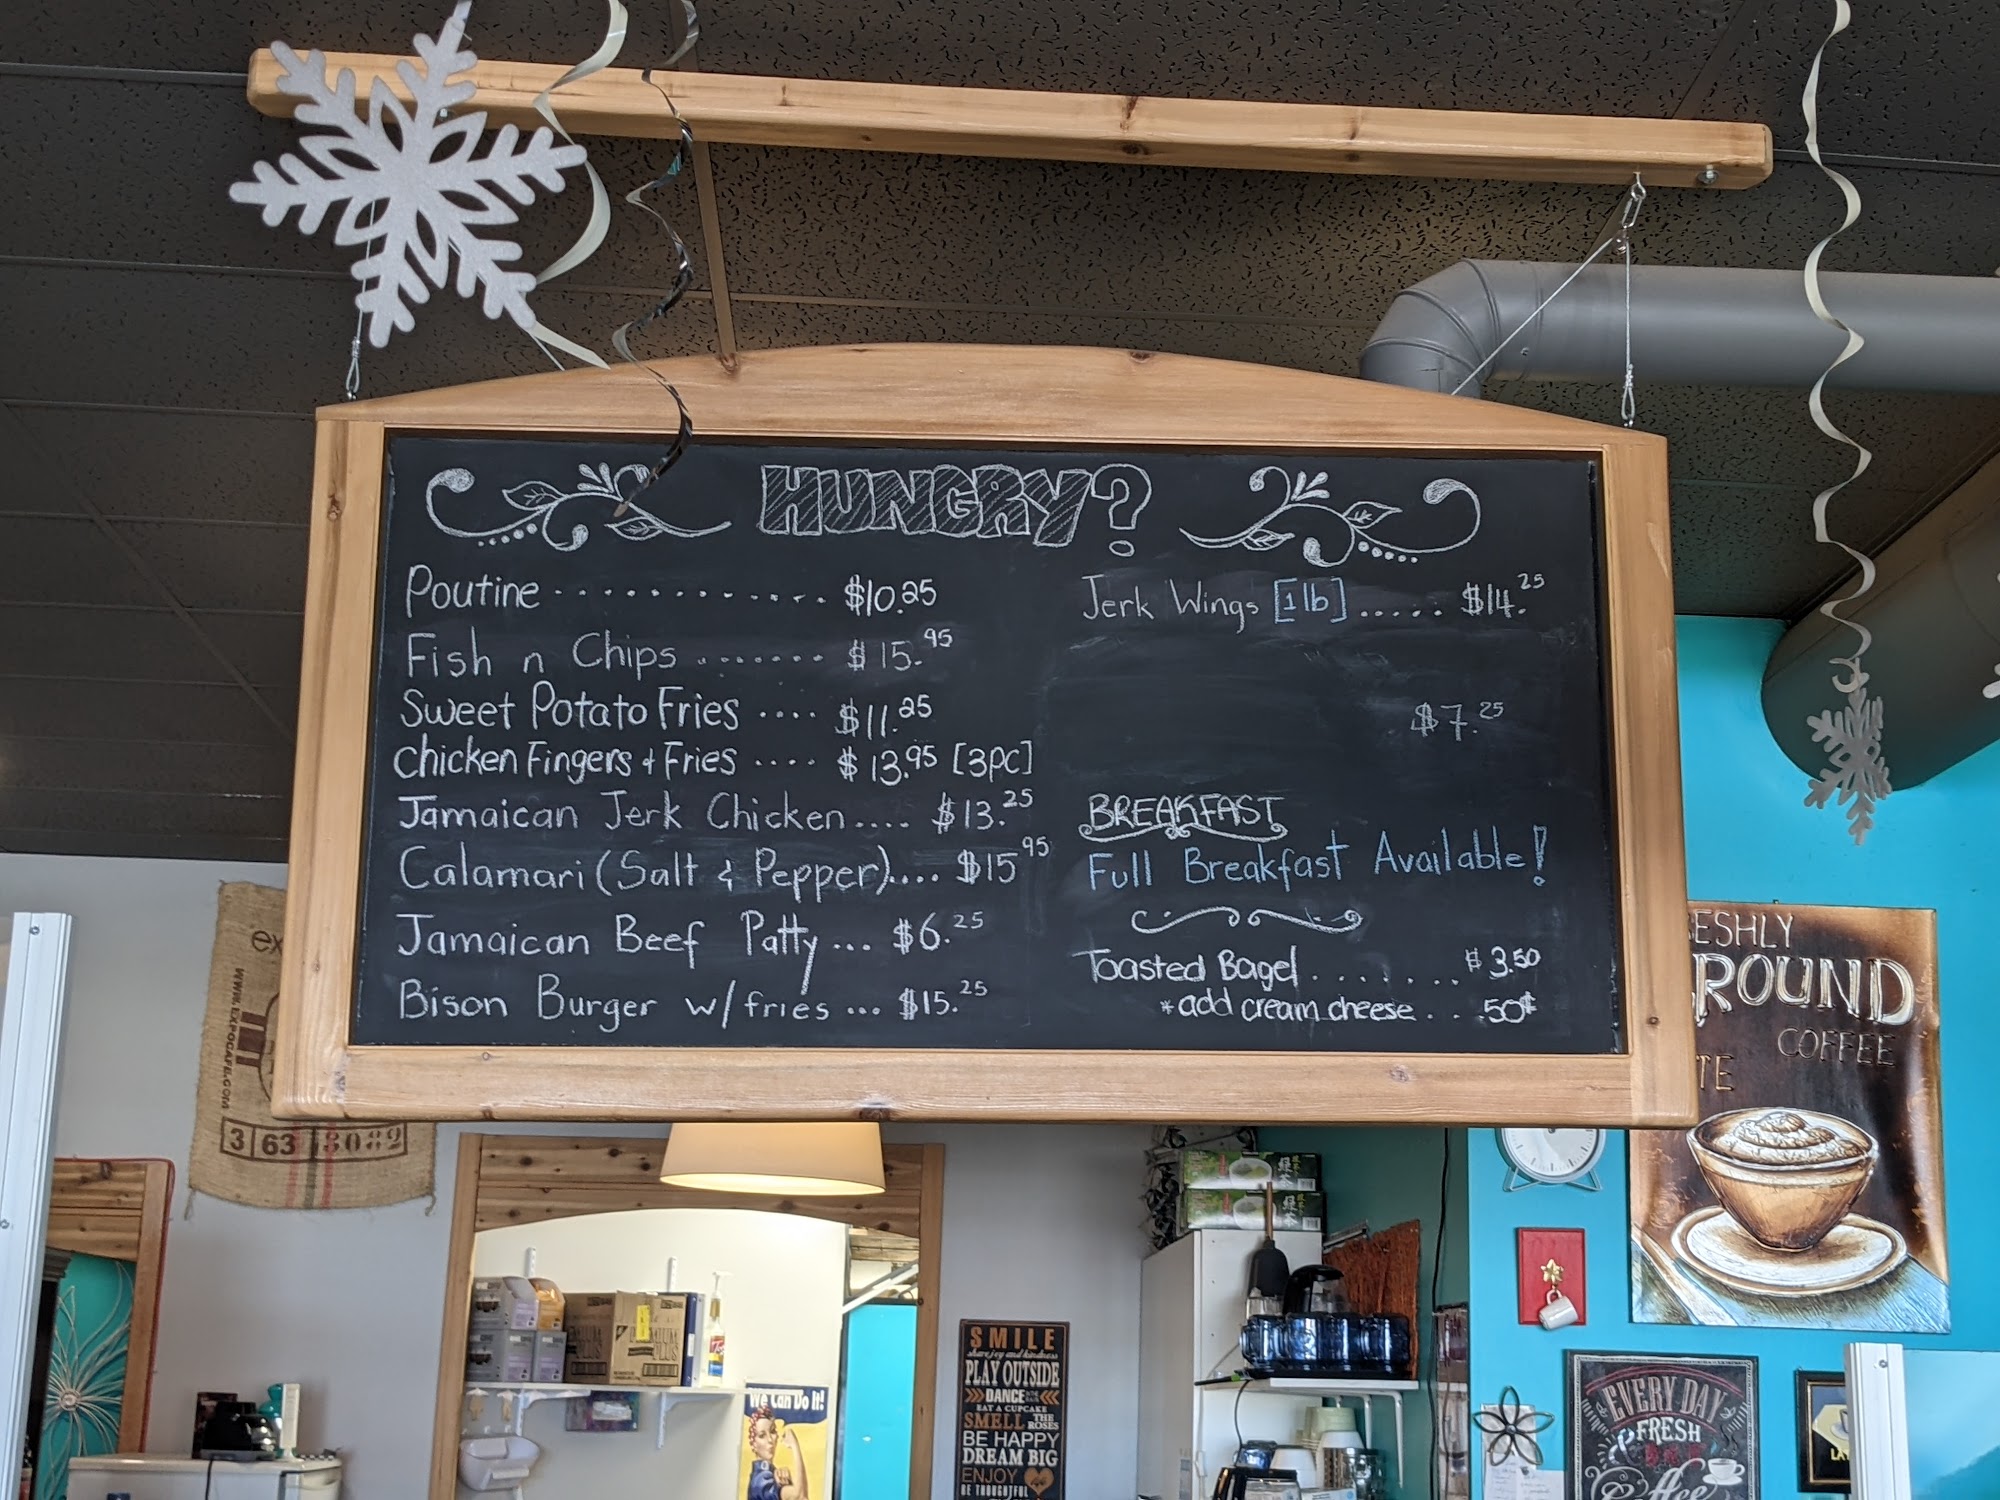 HUNGRY?
Poutine ............. $10.25
Fish n Chips ....... $15.95
Sweet Potato Fries .... $11.25
Chicken Fingers + Fries .... $13.95 [3pc]
Jamaican Jerk Chicken .... $13.25
Calamari (Salt & Pepper) .... $15 95
Jamaican Beef Patty ... $6.25
Bison Burger w/ fries ... $15.25
Jerk Wings [1 lb] ..... $14.25
$7.25
BREAKFAST
Full Breakfast Available!
Toasted Bagel ....... $3.50
*add cream cheese . . . .50¢
WWW.EXPOCAFE.COM
3 63 3082
ESHLY
ROUND
COFFEE
TE
We Can Do It!
SMILE
share joy and kindness
PLAY OUTSIDE
DANCE
EAT A CUPCAKE
SMELL THE ROSES
BE HAPPY
DREAM BIG
ENJOY
BE THOUGHTFUL
EVERY DAY
FRESH
Coffee
LA